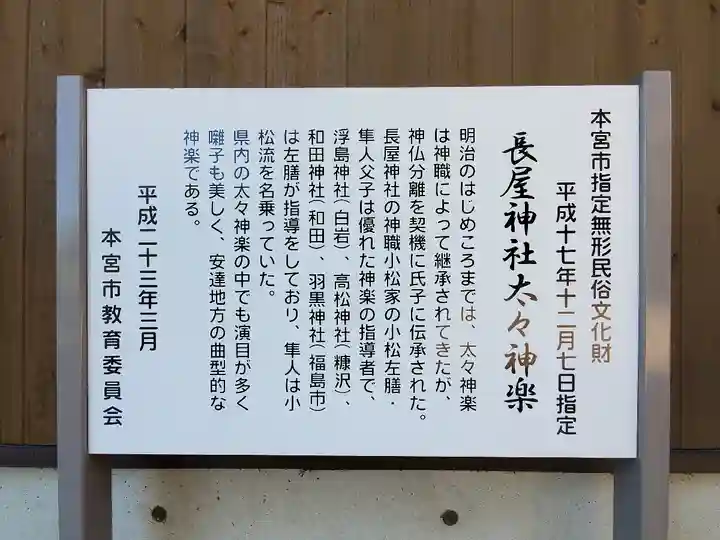 本宮市指定無形民俗文化財
平成十七年十二月七日指定
長屋神社太々神楽
明治のはじめころまでは、太々神楽
は神職によって継承されてきたが、
神仏分離を契機に氏子に伝承された。
長屋神社の神職小松家の小松左膳・
隼人父子は優れた神楽の指導者で、
浮島神社(白岩)、高松神社(糠沢)、
和田神社(和田)、羽黒神社(福島市)
は左膳が指導をしており、隼人は小
松流を名乗っていた。
県内の太々神楽の中でも演目が多く
囃子も美しく、安達地方の曲型的な
神楽である。
平成二十三年三月
本宮市教育委員会